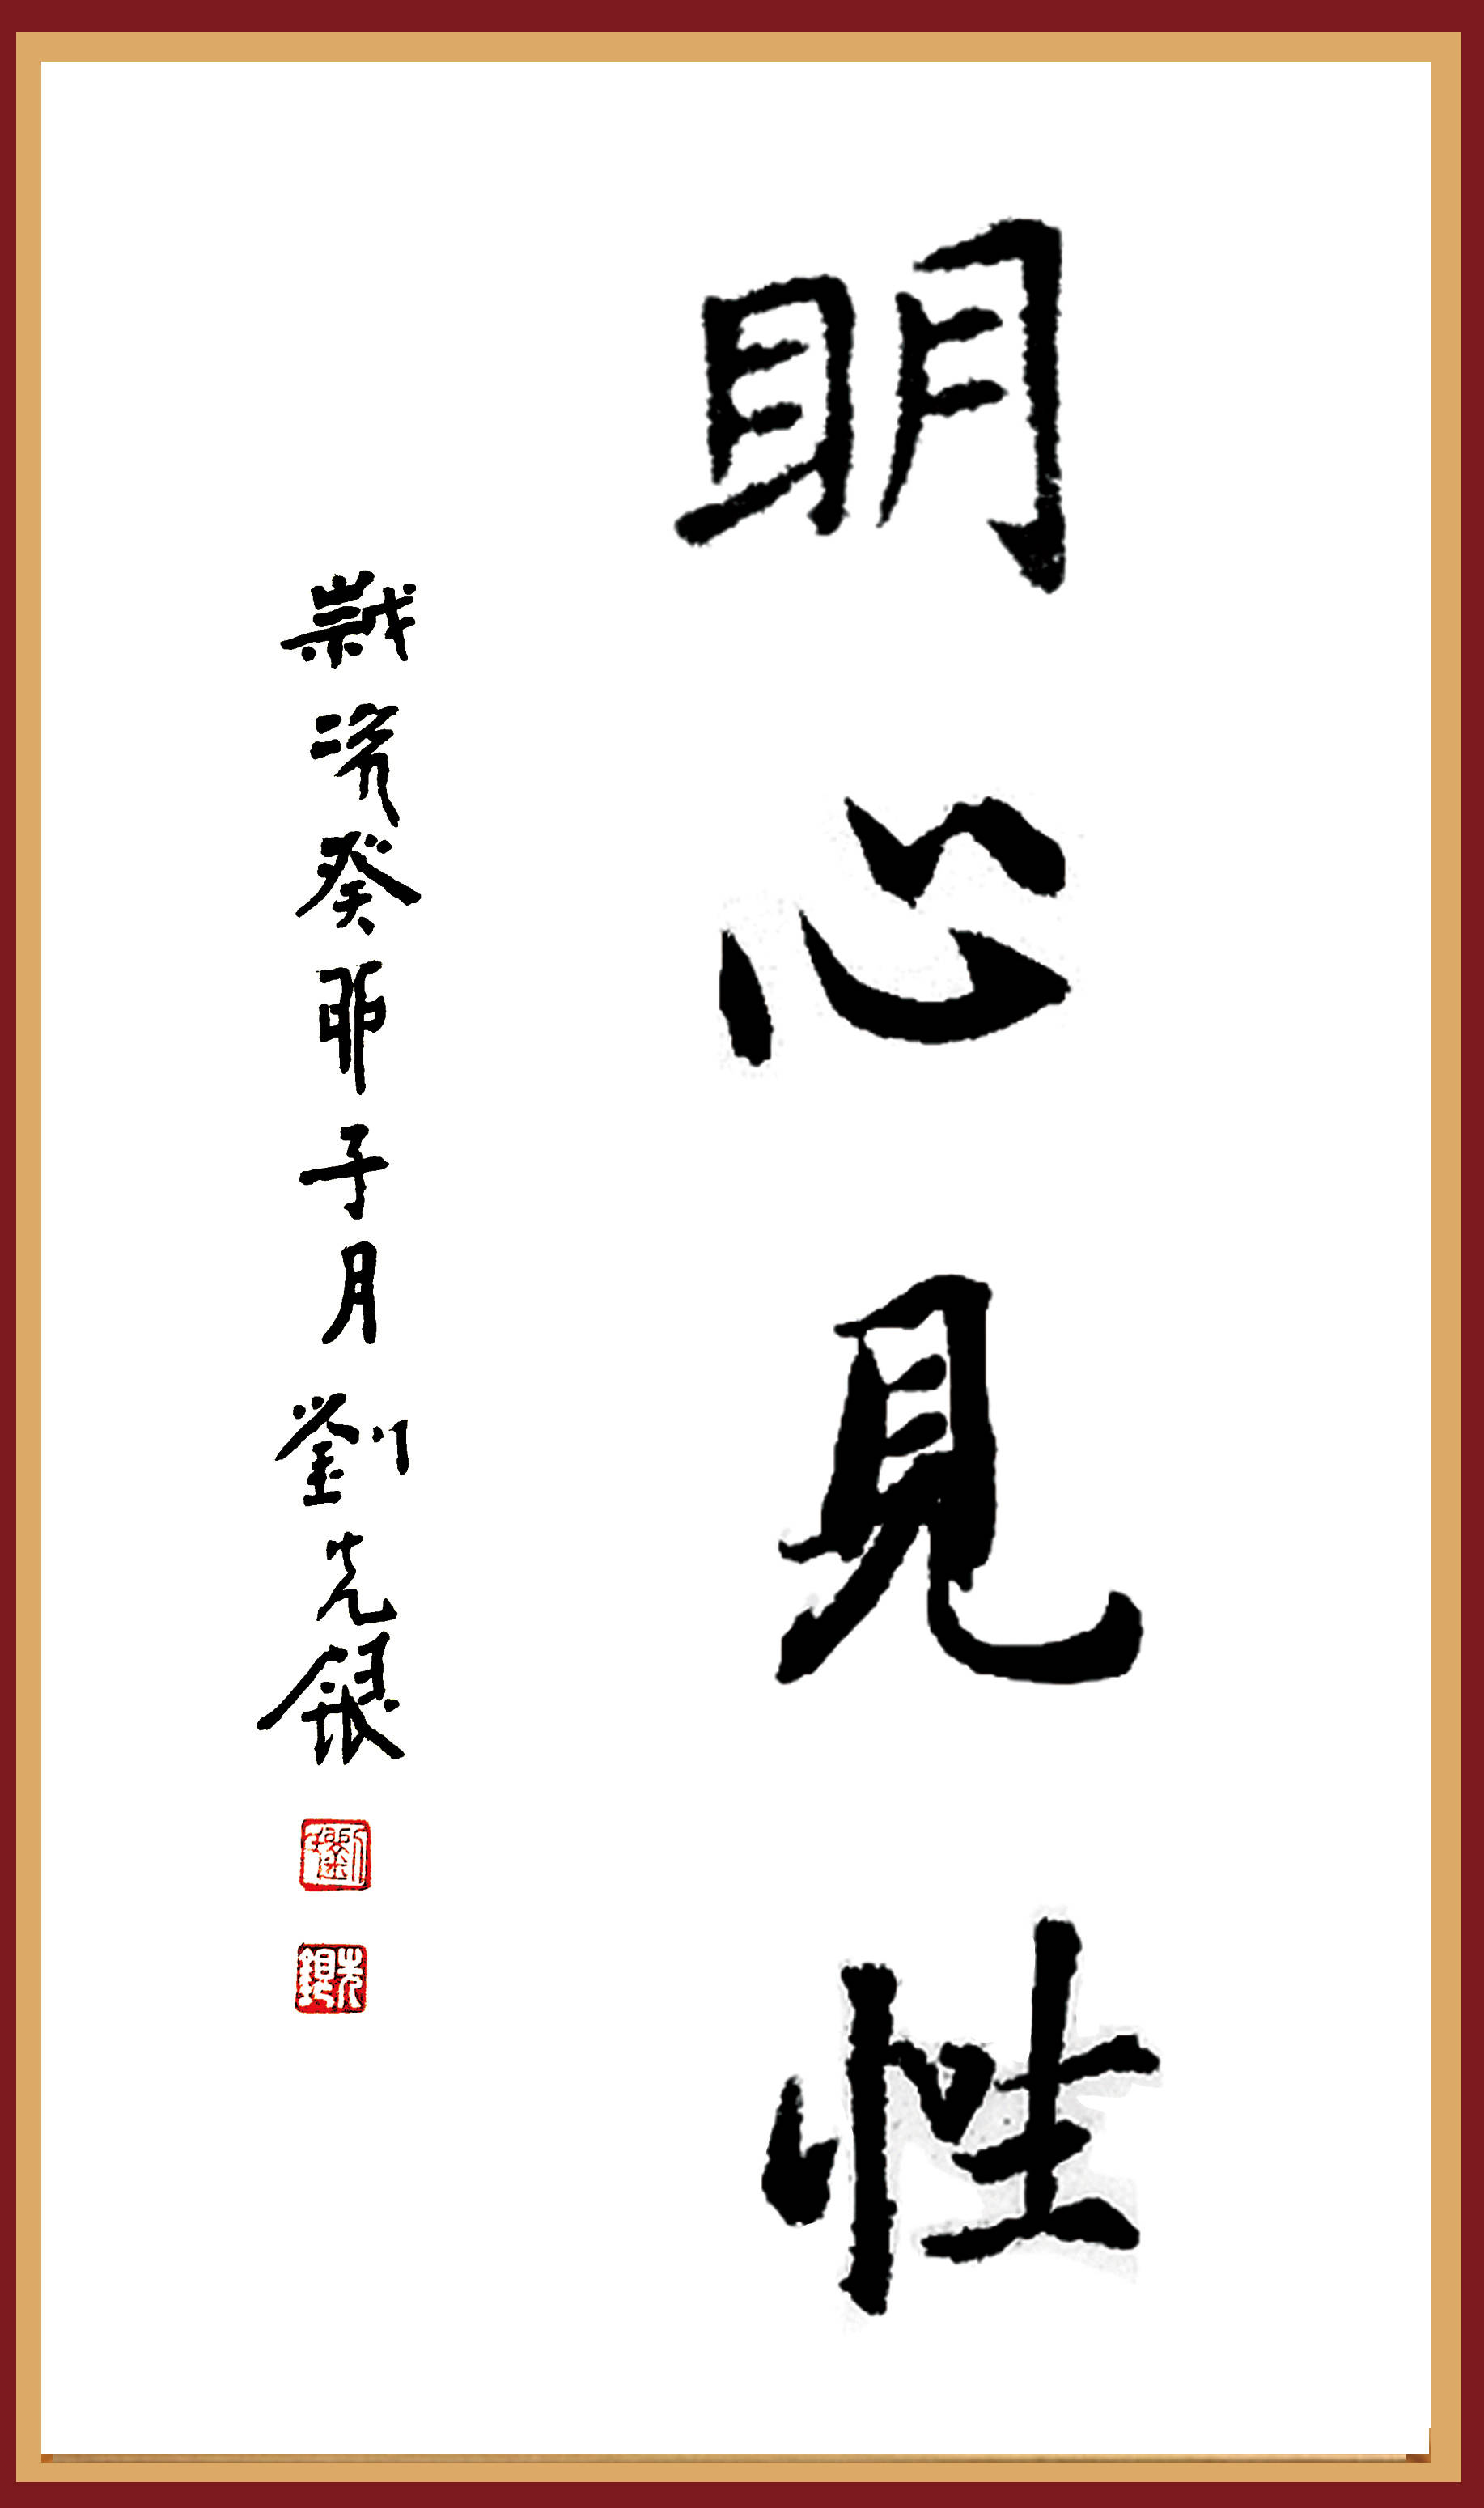 明心見性
歲次癸卯子月劉先銀
劉
先銀